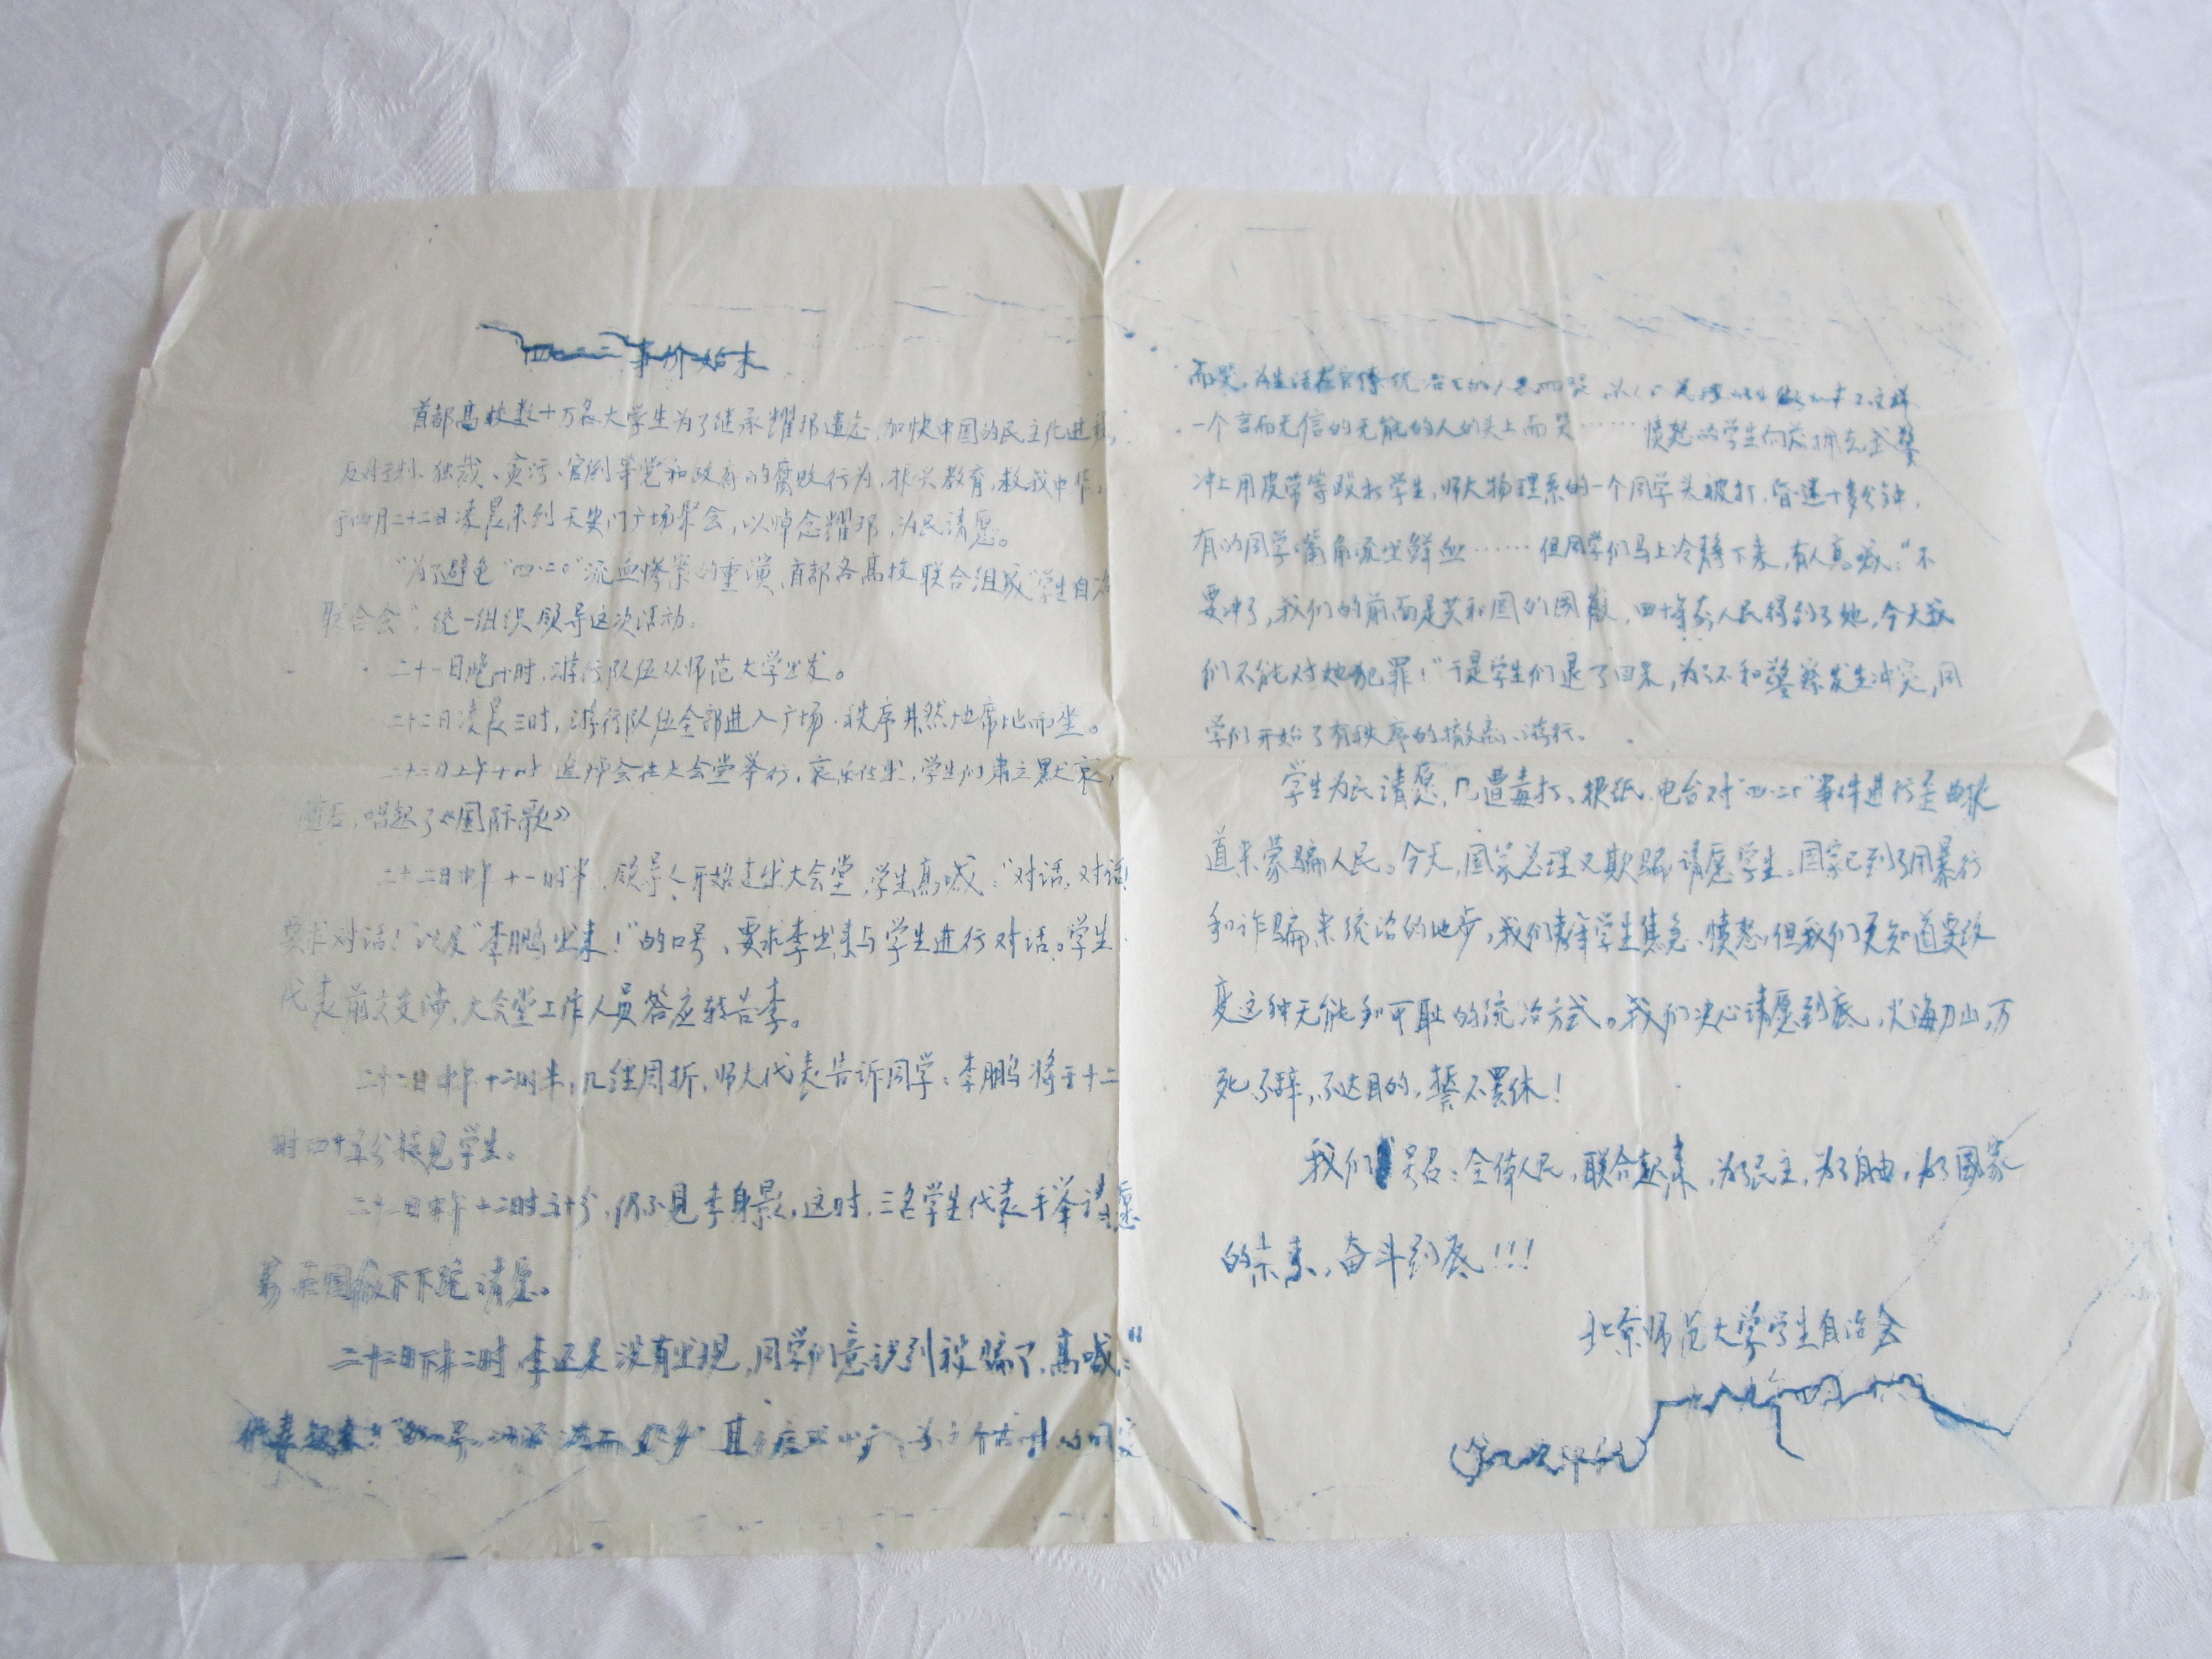 四·二二事件始末
首都高校数十万名大学生为了继承耀邦遗志,加快中国的民主化进程,
反对专制、独裁、贪污、官倒等党和政府的腐败行为,振兴教育,救我中华,
于四月二十二日凌晨来到天安门广场聚会,以悼念耀邦,为民请愿。
“为了避免“四·二〇”流血惨案的重演,首都各高校联合组成“学生自治
联合会”,统一组织领导这次活动。
二十一日晚十时,游行队伍从师范大学出发。
二十二日凌晨三时,游行队伍全部进入广场,秩序井然地席地而坐。
二十二日上午十时,追悼会在大会堂举行,哀乐传出,学生们肃立默哀,
随后,唱起了《国际歌》
二十二日中午十一时半,领导人开始走出大会堂,学生高喊:“对话,对话
要求对话!”以及“李鹏出来!”的口号,要求李出来与学生进行对话。学生
代表前去交涉,大会堂工作人员答应转告李。
二十二日中午十二时半,几经周折,师大代表告诉同学:李鹏将于十二
时四十五分接见学生。
二十二日中午十二时五十分,仍不见李身影,这时,三名学生代表手举请愿
书在国徽下下跪请愿。
二十二日下午二时,李还是没有出现,同学们意识到被骗了,高喊:“
代表起来!”
而哭,为生活在官僚统治下的人民而哭
一个言而无信的无能的人的头上而哭……愤怒的学生向前拥去,武警
冲上用皮带等殴打学生,师大物理系的一个同学头被打,昏迷十多分钟,
有的同学嘴角流出鲜血……但同学们马上冷静下来,有人高喊:“不
要冲了,我们的前面是共和国的国徽,四十年前人民得到了她,今天我
们不能对她犯罪!”于是学生们退了回来,为了不和警察发生冲突,同
学们开始了有秩序的撤离、游行。
学生为民请愿,几遭毒打、报纸、电台对“四·二〇”事件进行歪曲报
道来蒙骗人民。今天,国家总理又欺骗请愿学生。国家已到了用暴行
和诈骗来统治的地步,我们青年学生焦急、愤怒,但我们更知道要改
变这种无能和可耻的统治方式。我们决心请愿到底,火海刀山,万
死不辞,不达目的,誓不罢休!
我们号召:全体人民,联合起来,为了民主,为了自由,为了国家
的未来,奋斗到底!!!
北京师范大学学生自治会